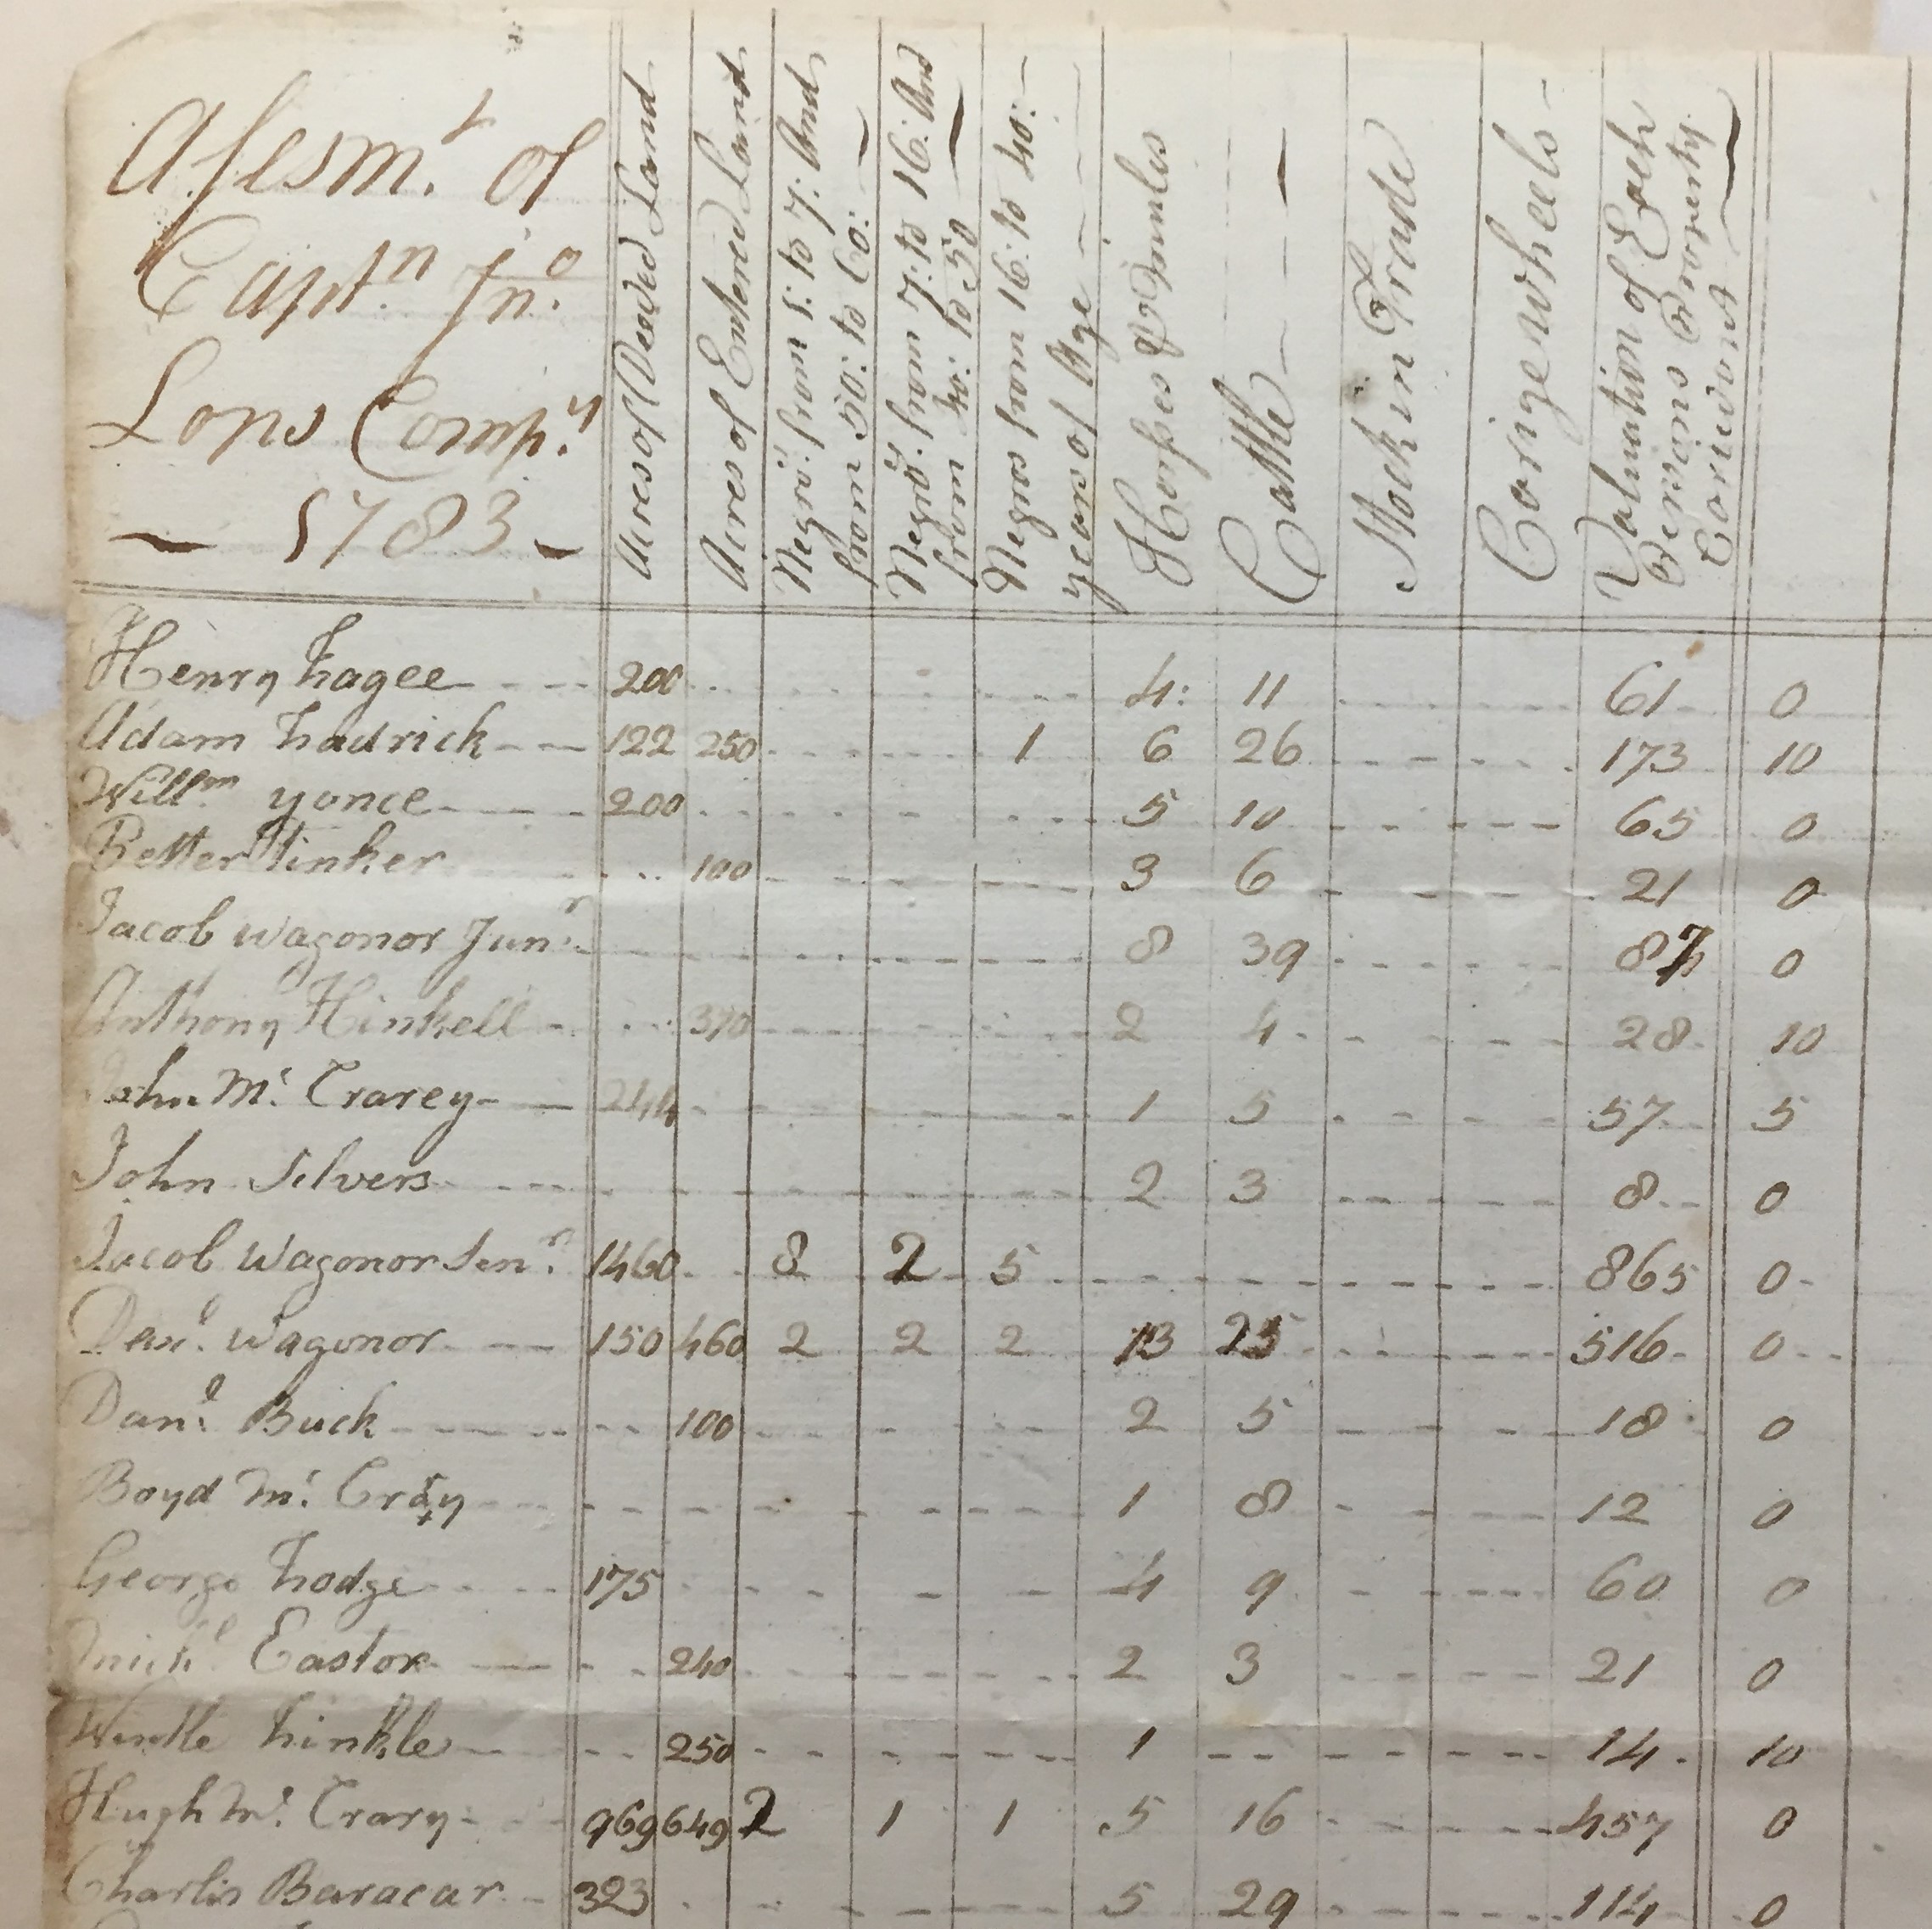 Assesm.t of
Capt.n Jn.o
Lops Comp.y
1783
Acres of Deeded Land
Acres of Entered Land
Negro.s from 5: to 7: And
from 50: to 60:
Negro.s from 7: to 16: And
from 40: to 50
Negros from 16: to 40:
years of Age
Horses & mules
Cattle
Stock in Trade
Carige wheels
Valuation of Each
Persons Property
Henry hagee 200 4: 11 61 0
Adam hadrick 122 250 1 6 26 173 10
Will.m yonce 200 5 10 65 0
Petter tinker 100 3 6 21 0
Jacob wagonor Jun.r 8 39 87 0
Anthony Hinkell 370 2 4 28 10
John M.c Crarey 244 1 5 57 5
John Silvers 2 3 8 0
Jacob wagonor Sen.r 1460 8 2 5 865 0
Dan.l wagonor 150 460 2 2 2 13 25 516 0
Dan.l Buck 100 2 5 18 0
Boyd M.c Cray 1 8 12 0
George hodge 175 4 9 60 0
Mich.l Eastor 240 2 3 21 0
Windle hinkle 250 1 14 10
Hugh M.c Crary 969 649 2 1 1 5 16 457 0
Charlis Baracar 323 5 29 114 0